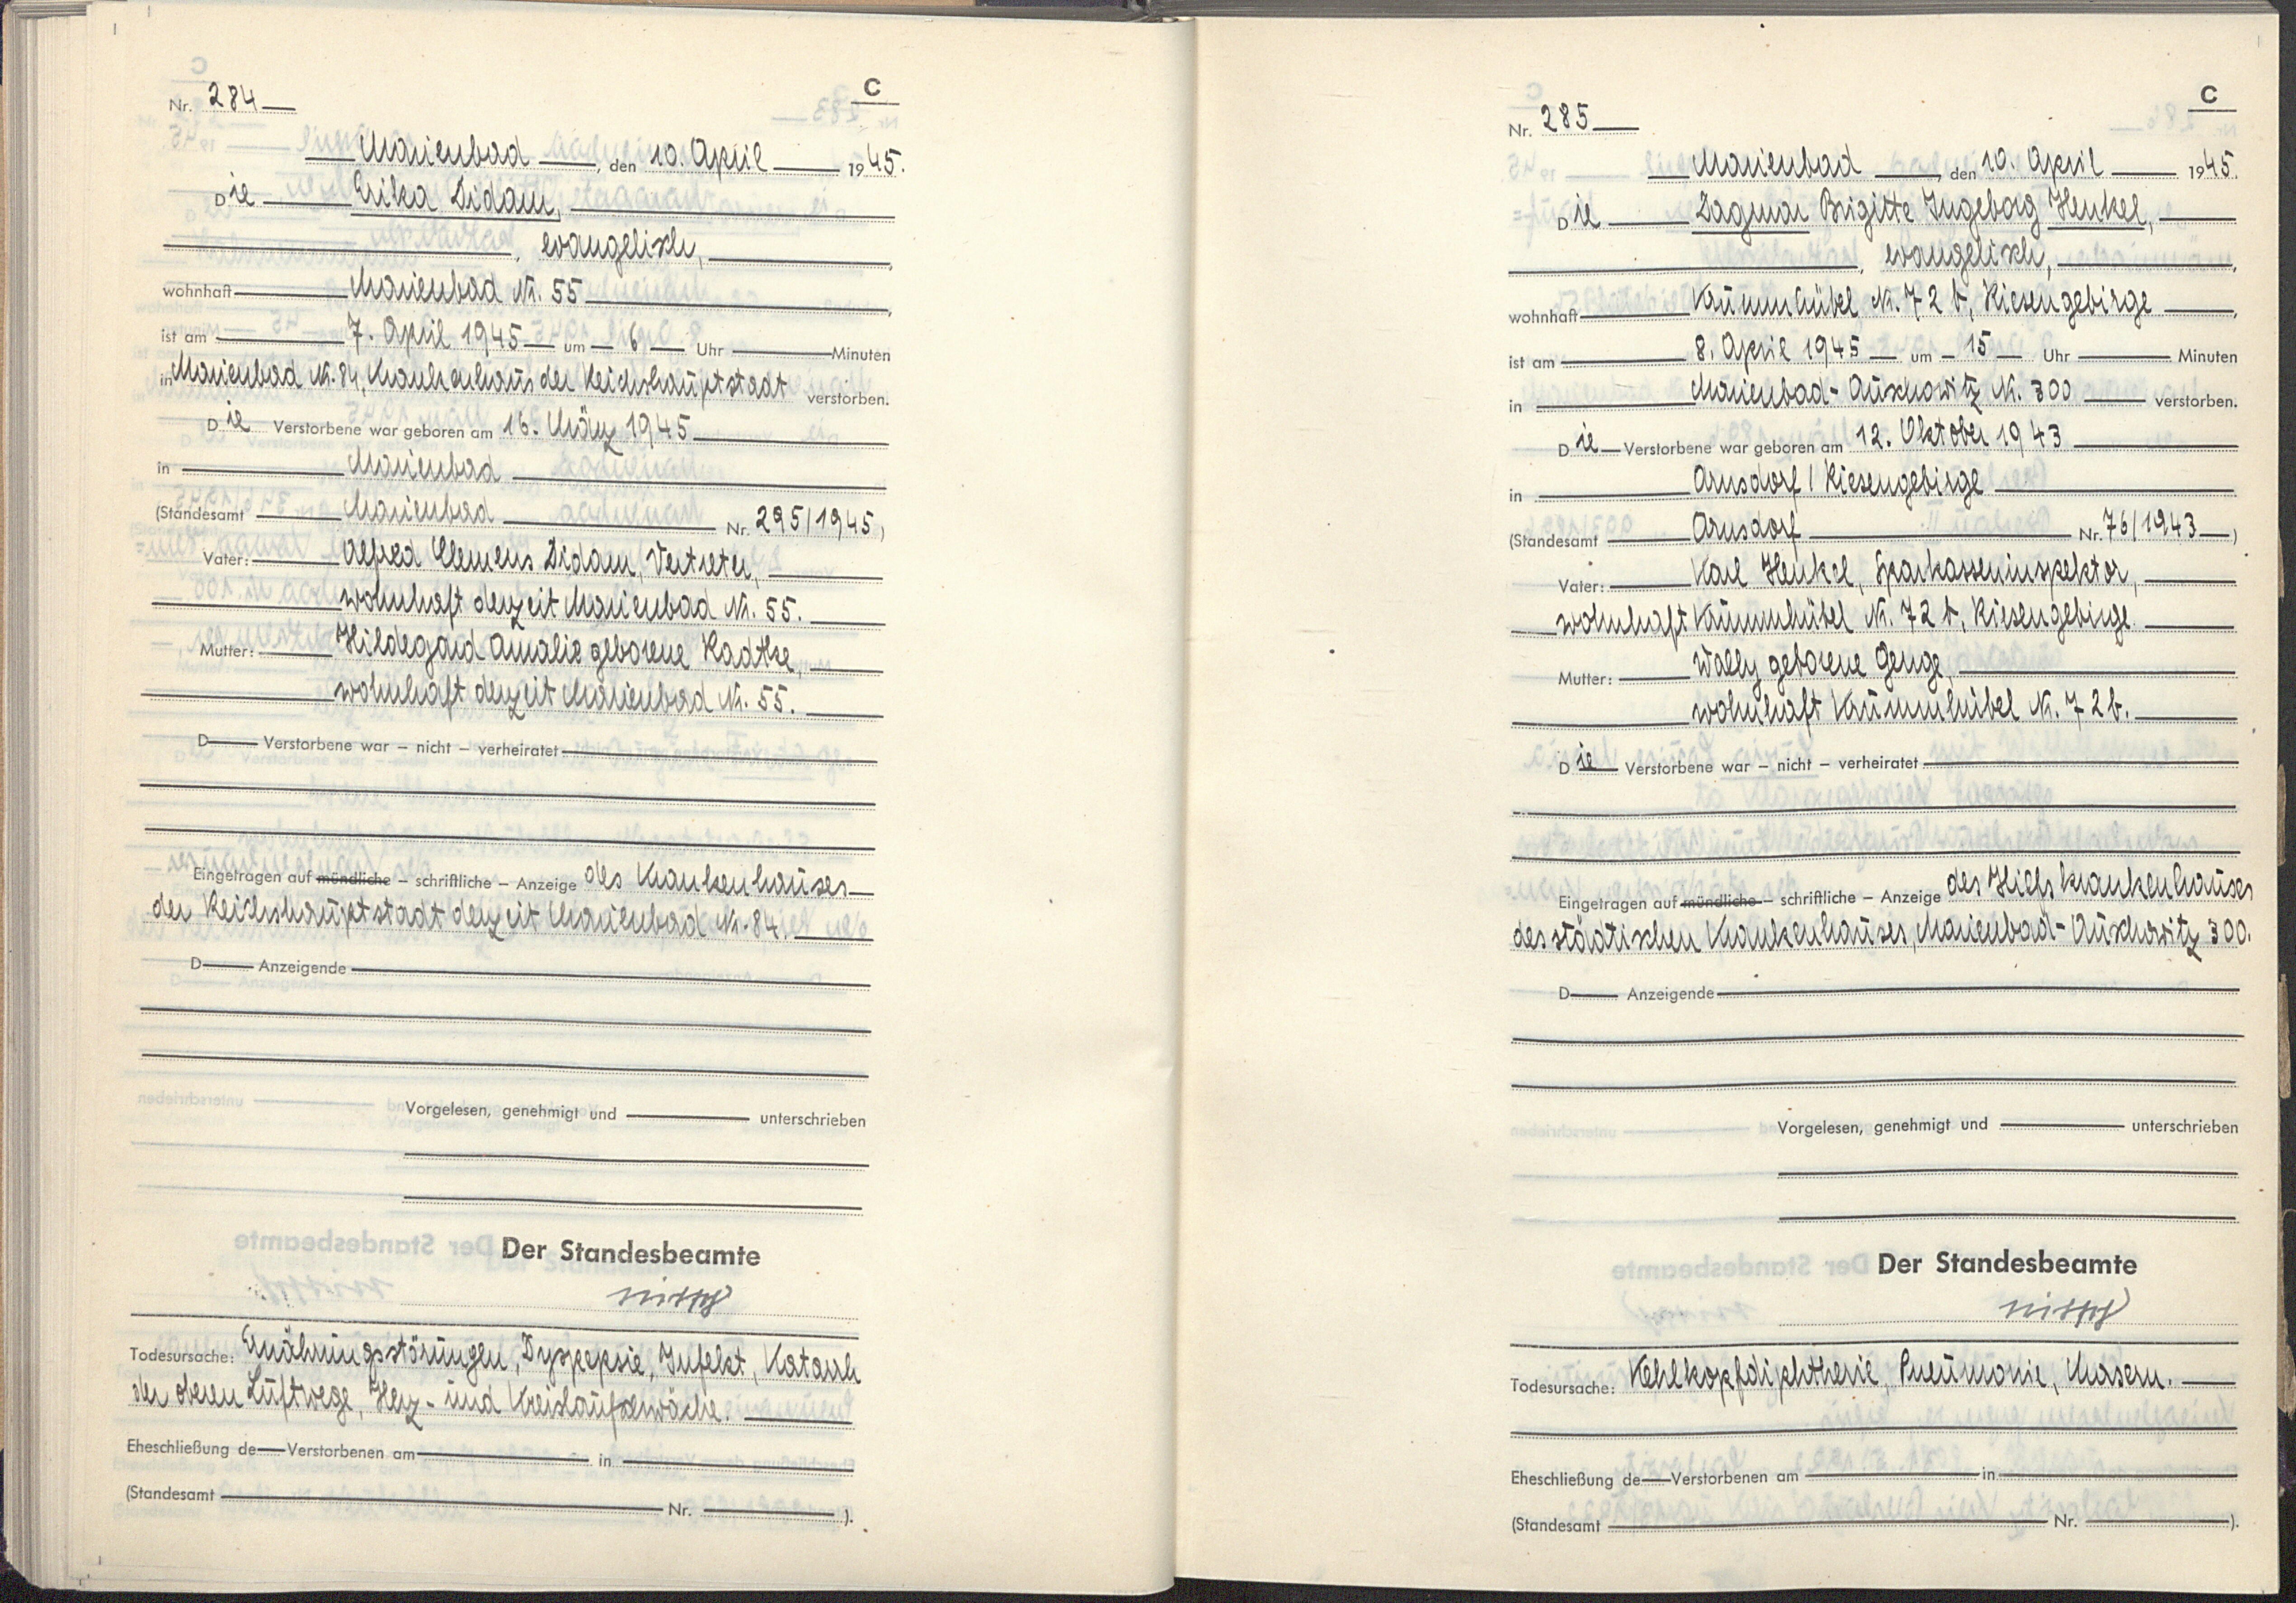 C
Nr. 284
Marienbad, den 10. April 1945.
Die Erika Didam,
, evangelisch,
wohnhaft Marienbad Nr. 55
ist am 7. April 1945 um 6 Uhr Minuten
in Marienbad Nr. 84, Krankenhaus der Reichshauptstadt verstorben.
Die Verstorbene war geboren am 16. März 1945
in Marienbad
(Standesamt Marienbad Nr. 295/1945)
Vater: Alfred Clemens Didam, Vertreter,
wohnhaft derzeit Marienbad Nr. 55.
Mutter: Hildegard Amalie geborene Radtke,
wohnhaft derzeit Marienbad Nr. 55.
D Verstorbene war – nicht – verheiratet
Eingetragen auf mündliche – schriftliche – Anzeige des Krankenhauses
der Reichshauptstadt derzeit Marienbad Nr. 84.
D Anzeigende
Vorgelesen, genehmigt und unterschrieben
Der Standesbeamte
Todesursache: Ernährungsstörungen, Dyspepsie, Infekt, Katarrh
der oberen Luftwege, Herz- und Kreislaufschwäche.
Eheschließung de Verstorbenen am in
(Standesamt Nr. ).
C
Nr. 285
Marienbad, den 10. April 1945.
Die Dagmar Brigitte Ingeborg Henkel,
, evangelisch,
wohnhaft Krummhübel Nr. 72 b, Riesengebirge,
ist am 8. April 1945 um 15 Uhr Minuten
in Marienbad-Auschowitz Nr. 300 verstorben.
Die Verstorbene war geboren am 12. Oktober 1943
in Arnsdorf / Riesengebirge
(Standesamt Arnsdorf Nr. 76/1943)
Vater: Karl Henkel, Sparkasseninspektor,
wohnhaft Krummhübel Nr. 72 b, Riesengebirge.
Mutter: Wally geborene Genge,
wohnhaft Krummhübel Nr. 72 b.
Die Verstorbene war – nicht – verheiratet
Eingetragen auf mündliche – schriftliche – Anzeige des Hilfskrankenhauses
des städtischen Krankenhauses, Marienbad-Auschowitz 300.
D Anzeigende
Vorgelesen, genehmigt und unterschrieben
Der Standesbeamte
Todesursache: Kehlkopfdiphtherie, Pneumonie, Masern.
Eheschließung de Verstorbenen am in
(Standesamt Nr. ).